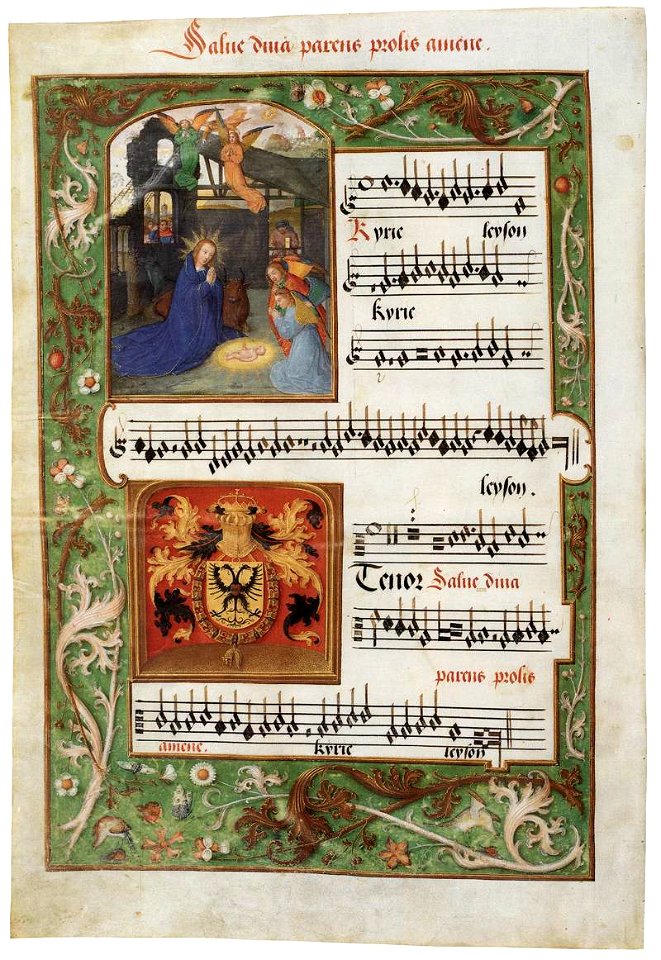 Salue diua parens prolis amene.
Kyrie leyson
Kyrie
leyson.
Tenor Salue diua
parens prolis
amene. kyrie leyson